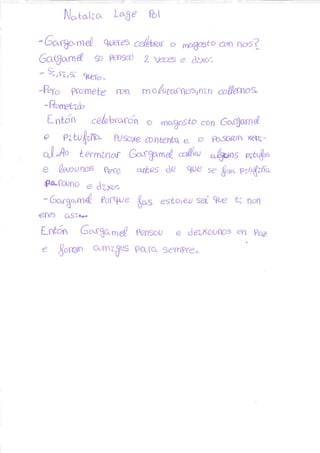 Natalia Lage Pol
-Gargamel queres celebrar o magosto con nos?
Gargamel so pensou 2 veces e dixo:
- Si, si, si quero.
-Pero promete non molestarnos, nin collernos.
-Prometido
Entón celebrarón o magosto con Gargamel
e Pitufiña. Púsose contenta e o pasaron xeni-
al. Ao terminar Gargamel colleu algúns pitufos
e levounos pero antes de que se fora pitufiña
parouno e dixo:
-Gargamel Porque fas esto, eu sei que ti non
eres así.
Entón Gargamel Pensou e deixounos en Paz
e foron amigos para sempre.